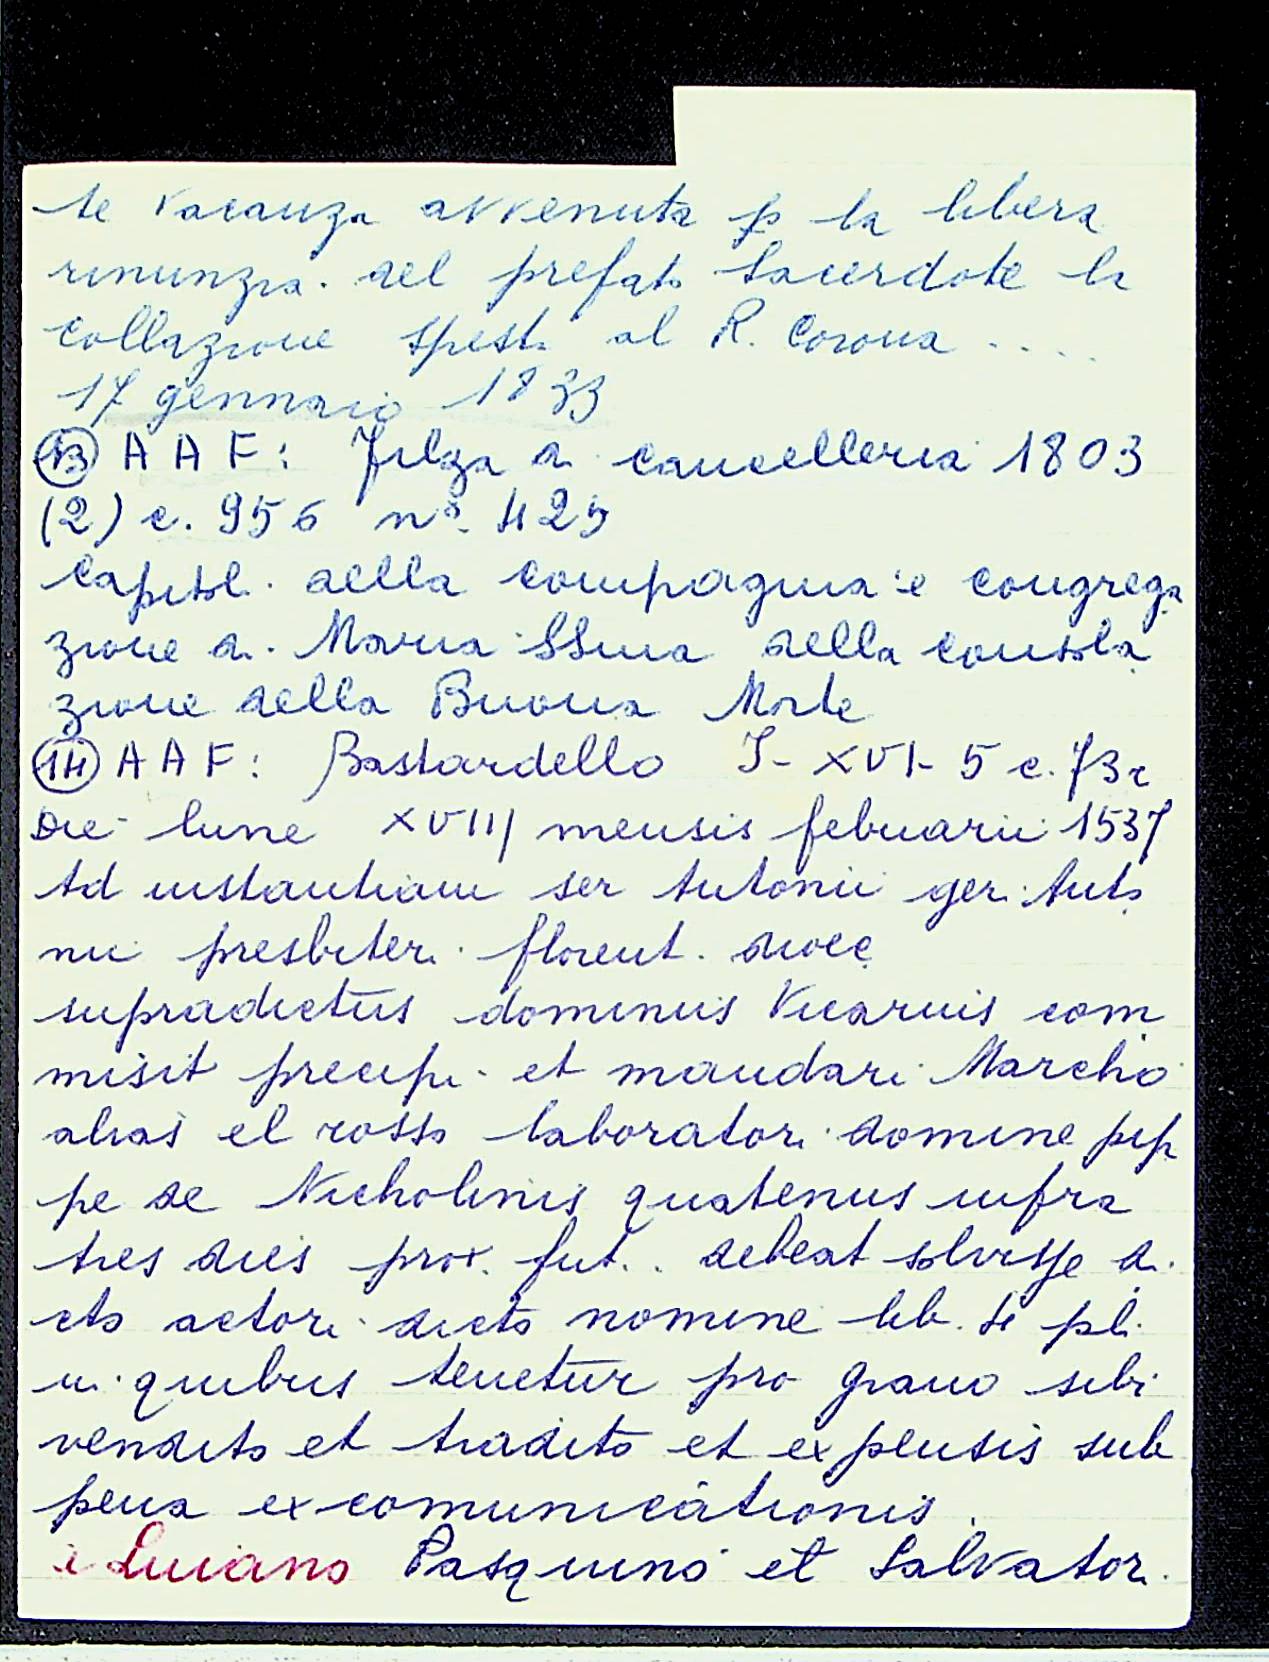 te vacanza avvenuta p la libera
rinunzia del prefato Sacerdote la
collazione spett. al R. Corona ....
17 gennaio 1833
(13) A A F: Filza di cancelleria 1803
(2) c. 956 n°. 425
Capitoli della compagnia e congrega
zione di Maria SSma della consola
zione della Buona Morte
(14) A A F: Bastardello I - XVI - 5 c. 73r
Die lune XVIII mensis februarii 1537
Ad instantiam ser Antonii ger. Anto
nii presbiteri florent. dioc.
supradictus dominus Vicarius com
misit precipi et mandari Marcho
alias el rosso laboratori domine pip
pe de Nicholinis quatenus infra
tres dies prox. fut. . debeat solvisse di
cto actori dicto nomine lib. 4 pli
in quibus tenetur pro grano sibi
vendito et tradito et expensis sub
pena excomunicationis.
i Luiano Pasquino et Salvatori